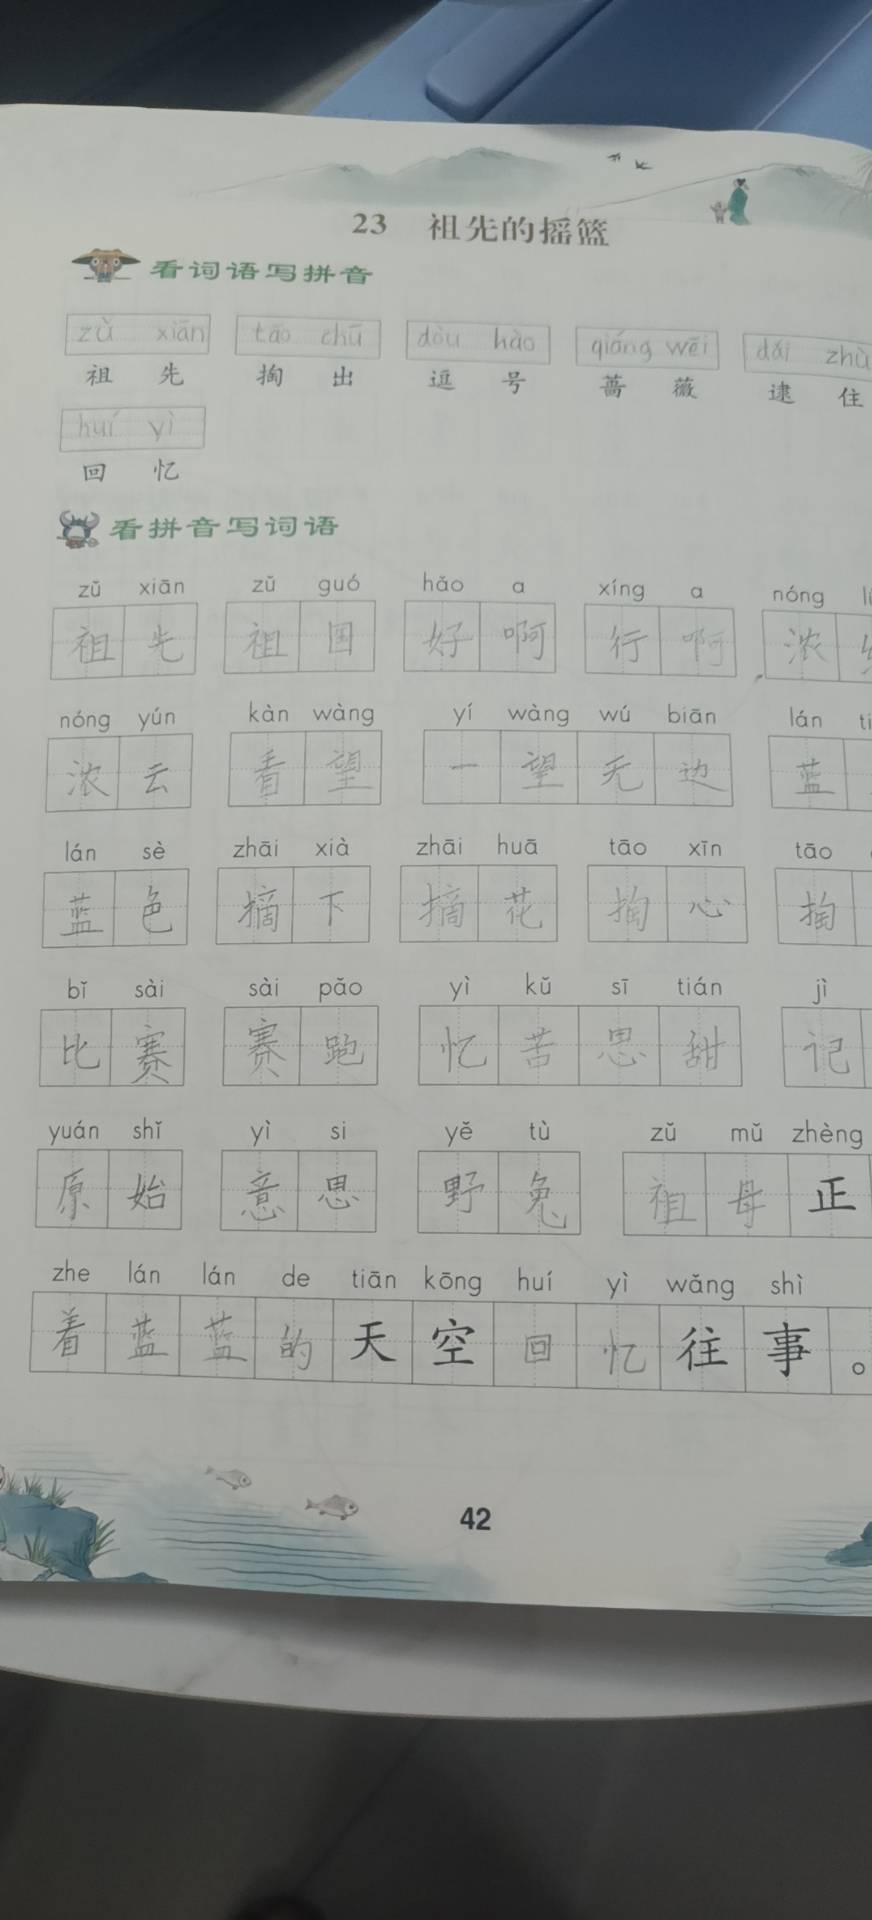 23 祖先的摇篮
看词语写拼音
zǔ xiān tāo chū dòu hào qiáng wēi dǎi zhù
祖 先 掏 出 逗 号 蔷 薇 逮 住
huí yì
回 忆
看拼音写词语
zǔ xiān zǔ guó hǎo a xíng a nóng
祖 先 祖 国 好 啊 行 啊 浓
nóng yún kàn wàng yí wàng wú biān lán
浓 云 看 望 一 望 无 边 蓝
lán sè zhāi xià zhāi huā tāo xīn tāo
蓝 色 摘 下 摘 花 掏 心 掏
bǐ sài sài pǎo yì kǔ sī tián jì
比 赛 赛 跑 忆 苦 思 甜 记
yuán shǐ yì si yě tù zǔ mǔ zhèng
原 始 意 思 野 兔 祖 母 正
zhe lán lán de tiān kōng huí yì wǎng shì
着 蓝 蓝 的 天 空 回 忆 往 事 。
42